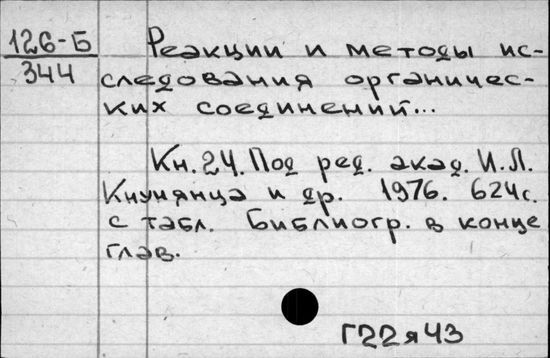 126-Б
344
Реакции и методы ис-
следования органичес-
ких соединений...
Кн. 24. Под ред. акад. И.Л.
Кнунянца и др. 1976. 624с.
с табл. Библиогр. в конце
глав.
Г22я43